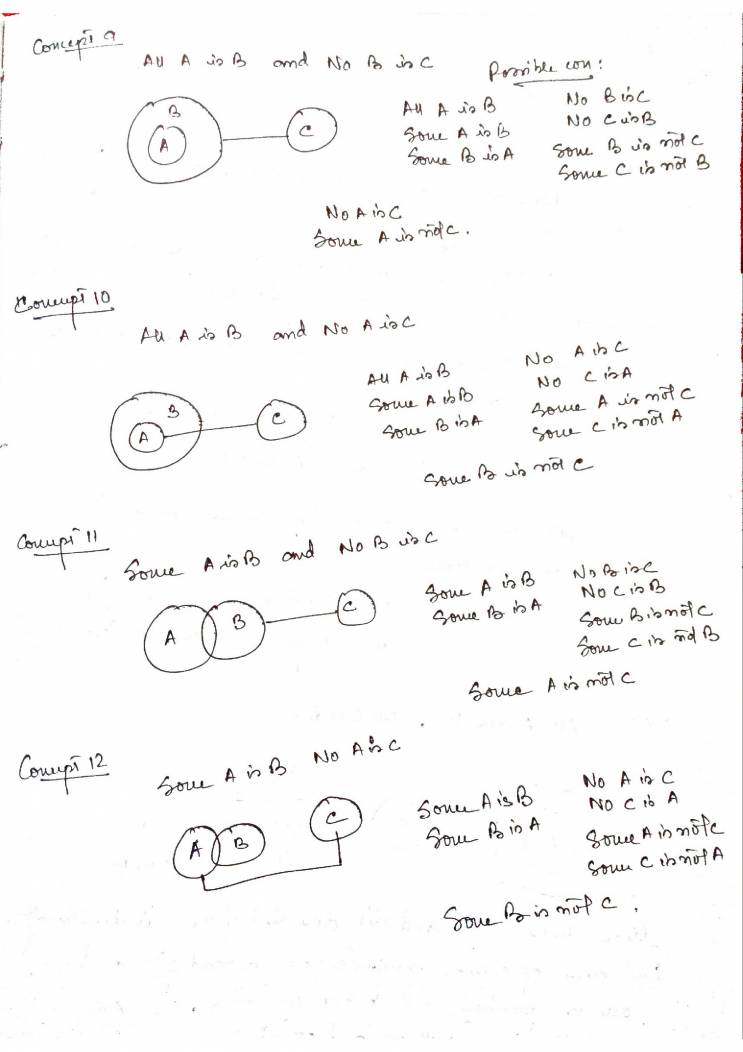 Concept 9
All A is B and No B is C
Possible con:
B
A
C
All A is B
Some A is B
Some B is A
No B is C
No C is B
Some B is not C
Some C is not B
No A is C
Some A is not C.
Concept 10
All A is B and No A is C
B
A
C
All A is B
Some A is B
Some B is A
No A is C
No C is A
Some A is not C
Some C is not A
Some B is not C
Concept 11
Some A is B and No B is C
A
B
C
Some A is B
Some B is A
No B is C
No C is B
Some B is not C
Some C is not B
Some A is not C
Concept 12
Some A is B No A is C
A
B
C
Some A is B
Some B is A
No A is C
No C is A
Some A is not C
Some C is not A
Some B is not C.